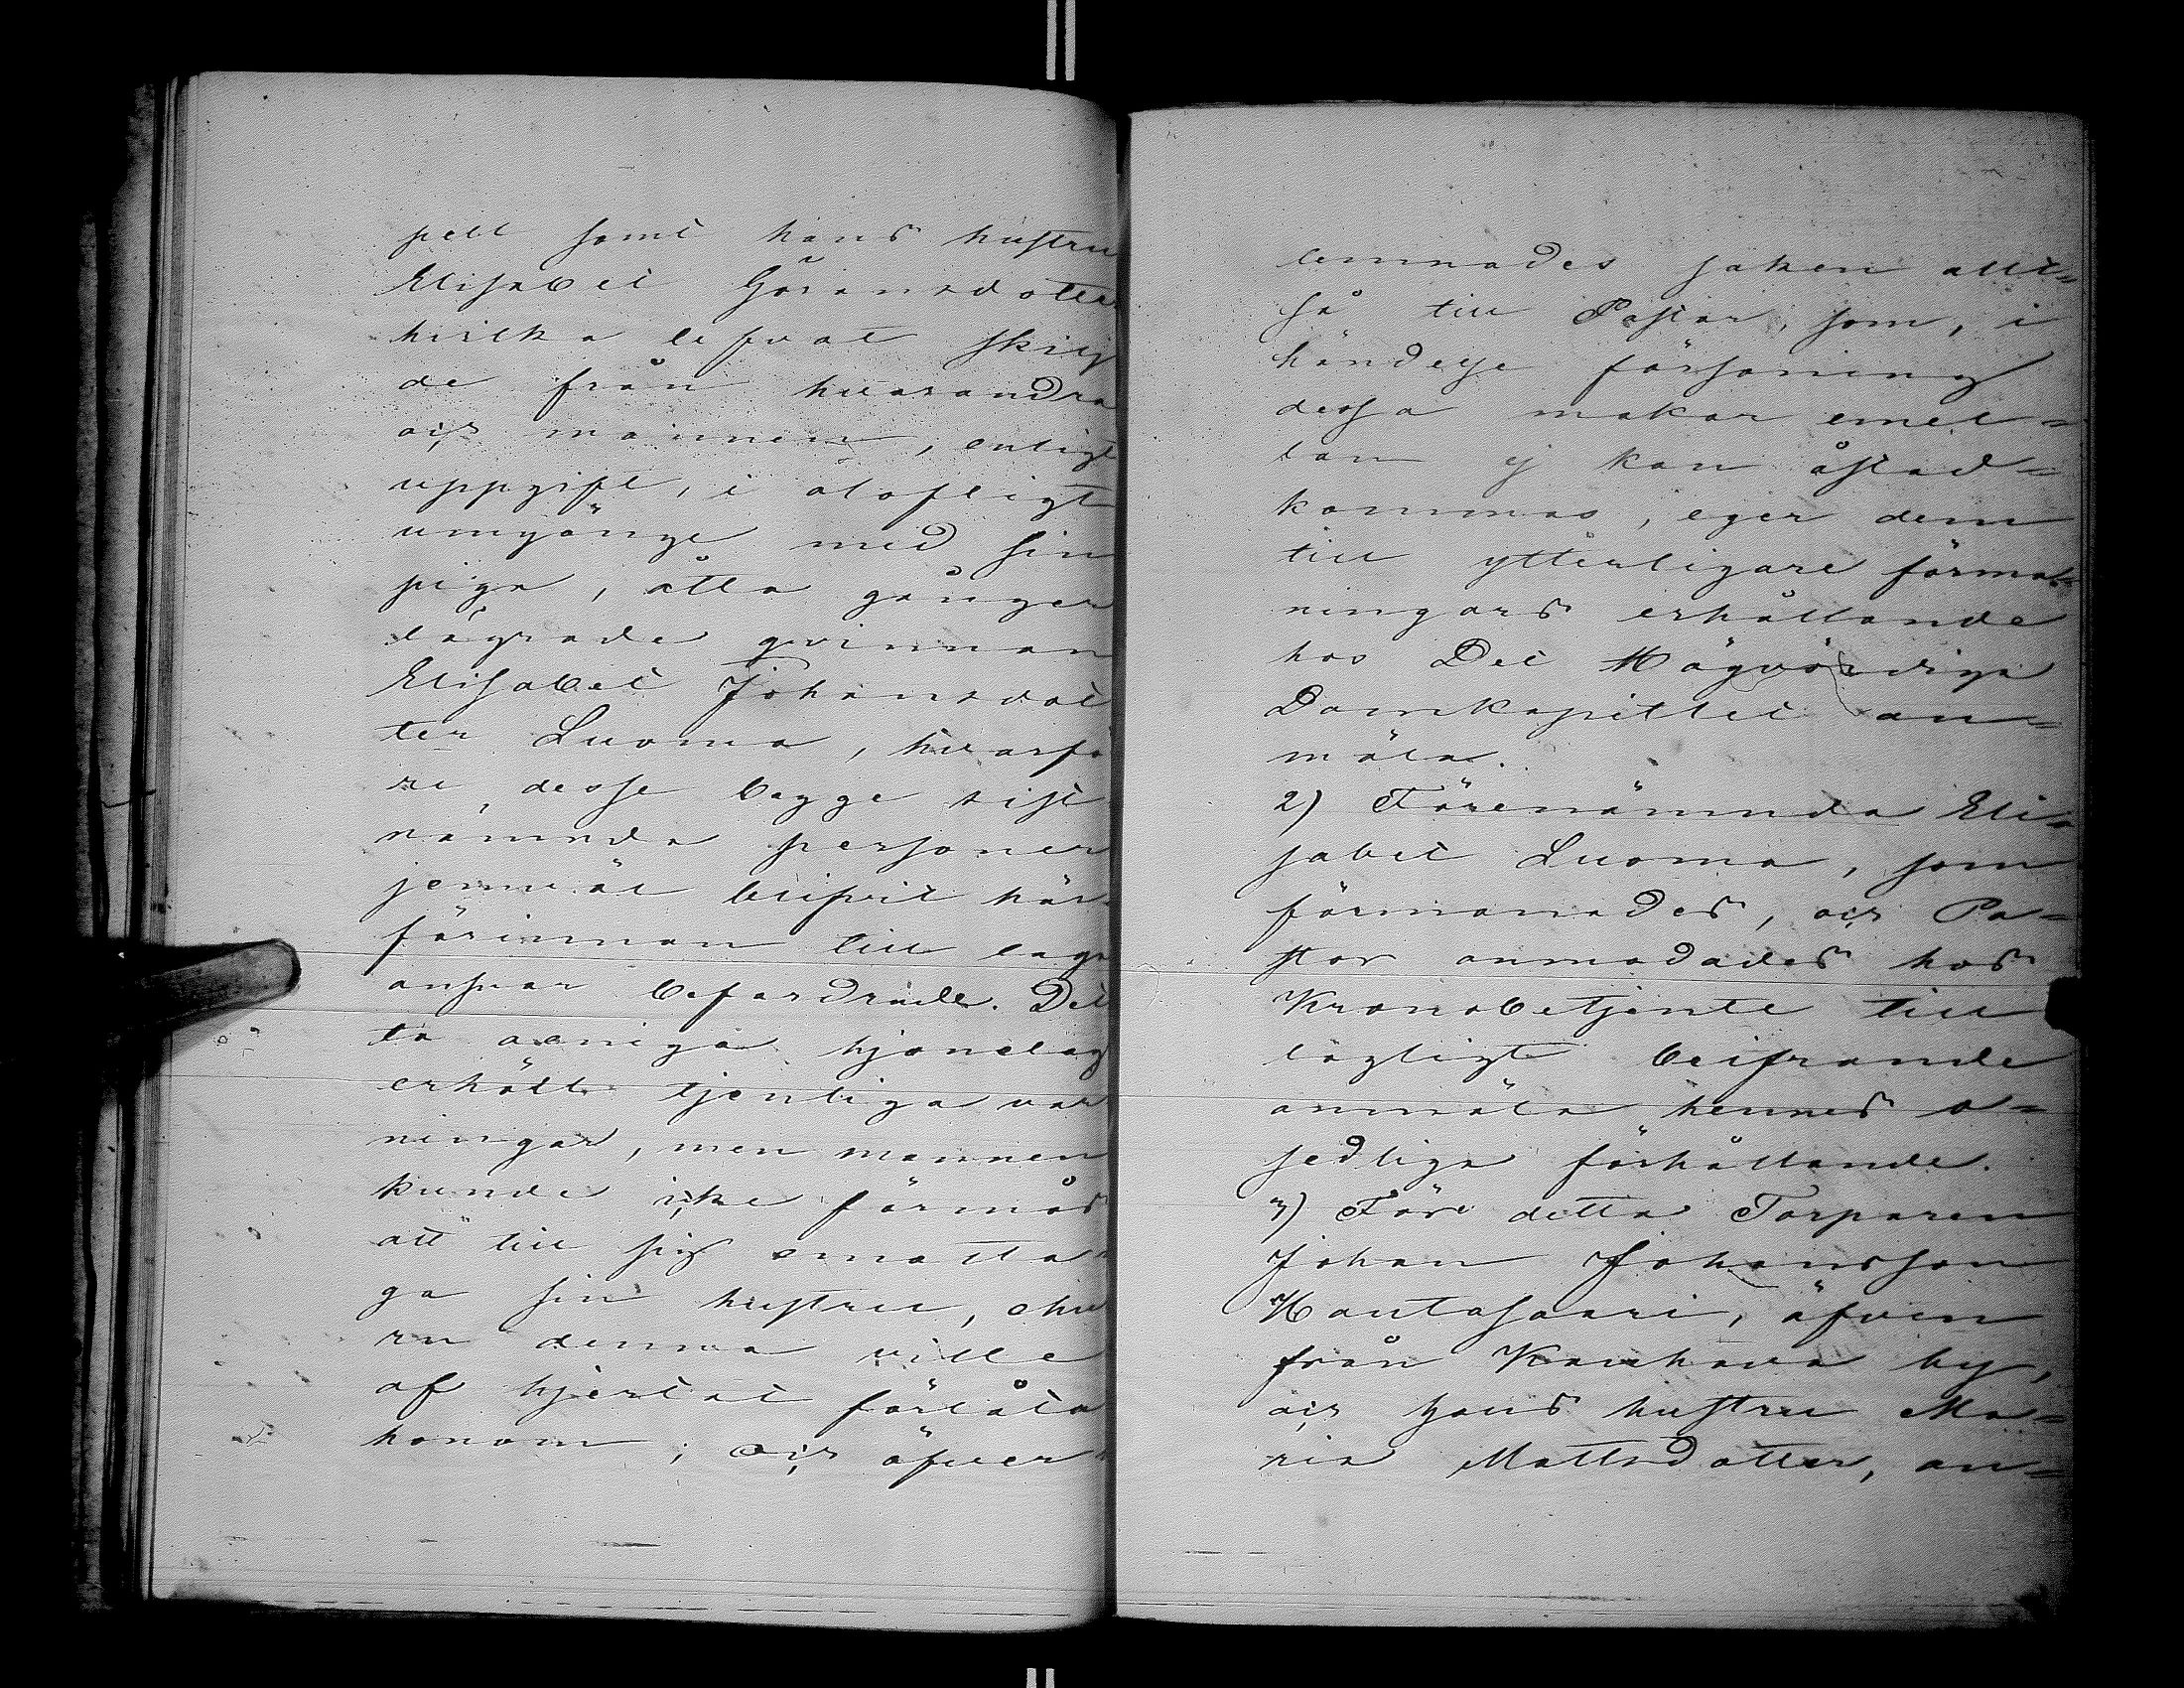 pell samt hans hustru
Elisabet Göransdotter
hvilka lefvat skilj
de från hvarandra
och mannen, enligt
uppgift, i olofligt
umgänge med sin
piga, åtta gånger
lägrade qvinnan
Elisabet Johansdot
ter Luoma, hvarfö
re desse begge sist
nämnda personer
jemväl blifvit här
förinnan till laga
ansvar befordrade. Det
ta oeniga hjonelag
erhöll tjenliga var
ningar, men mannen
kunde icke förmås
att till sig emotta
ga sin hustru, ehu
ru denna ville
af hjertat förlåta
honom; och öfver
lemnades saken allt=
så till Pastor, som, i
händelse försoning
dessa makar emel=
lan ej kan åstad=
kommas, eger dem
till ytterligare förma=
ningars erhållande
hos Det Högvördiga
Domkapitlet an=
mäla.
2) Förenämnda Eli=
sabet Luoma, som
förmanades, och Pa=
stor anmodades hos
Kronobetjente till
lagligt beifrande
anmäla hennes o=
sedliga förhållande.
3) Före detta Torparen
Johan Johansson
Hautasaari, äfven
från Kauhava by,
och hans hustru Ma=
ria Mattsdotter, an=